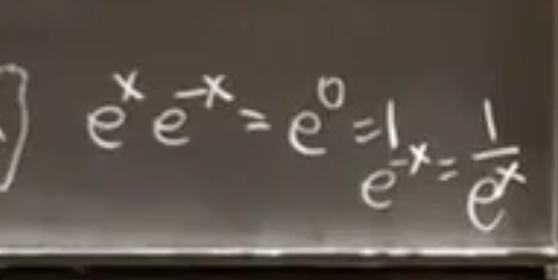 eˣ e⁻ˣ = e⁰ = 1
e⁻ˣ = 1/eˣ